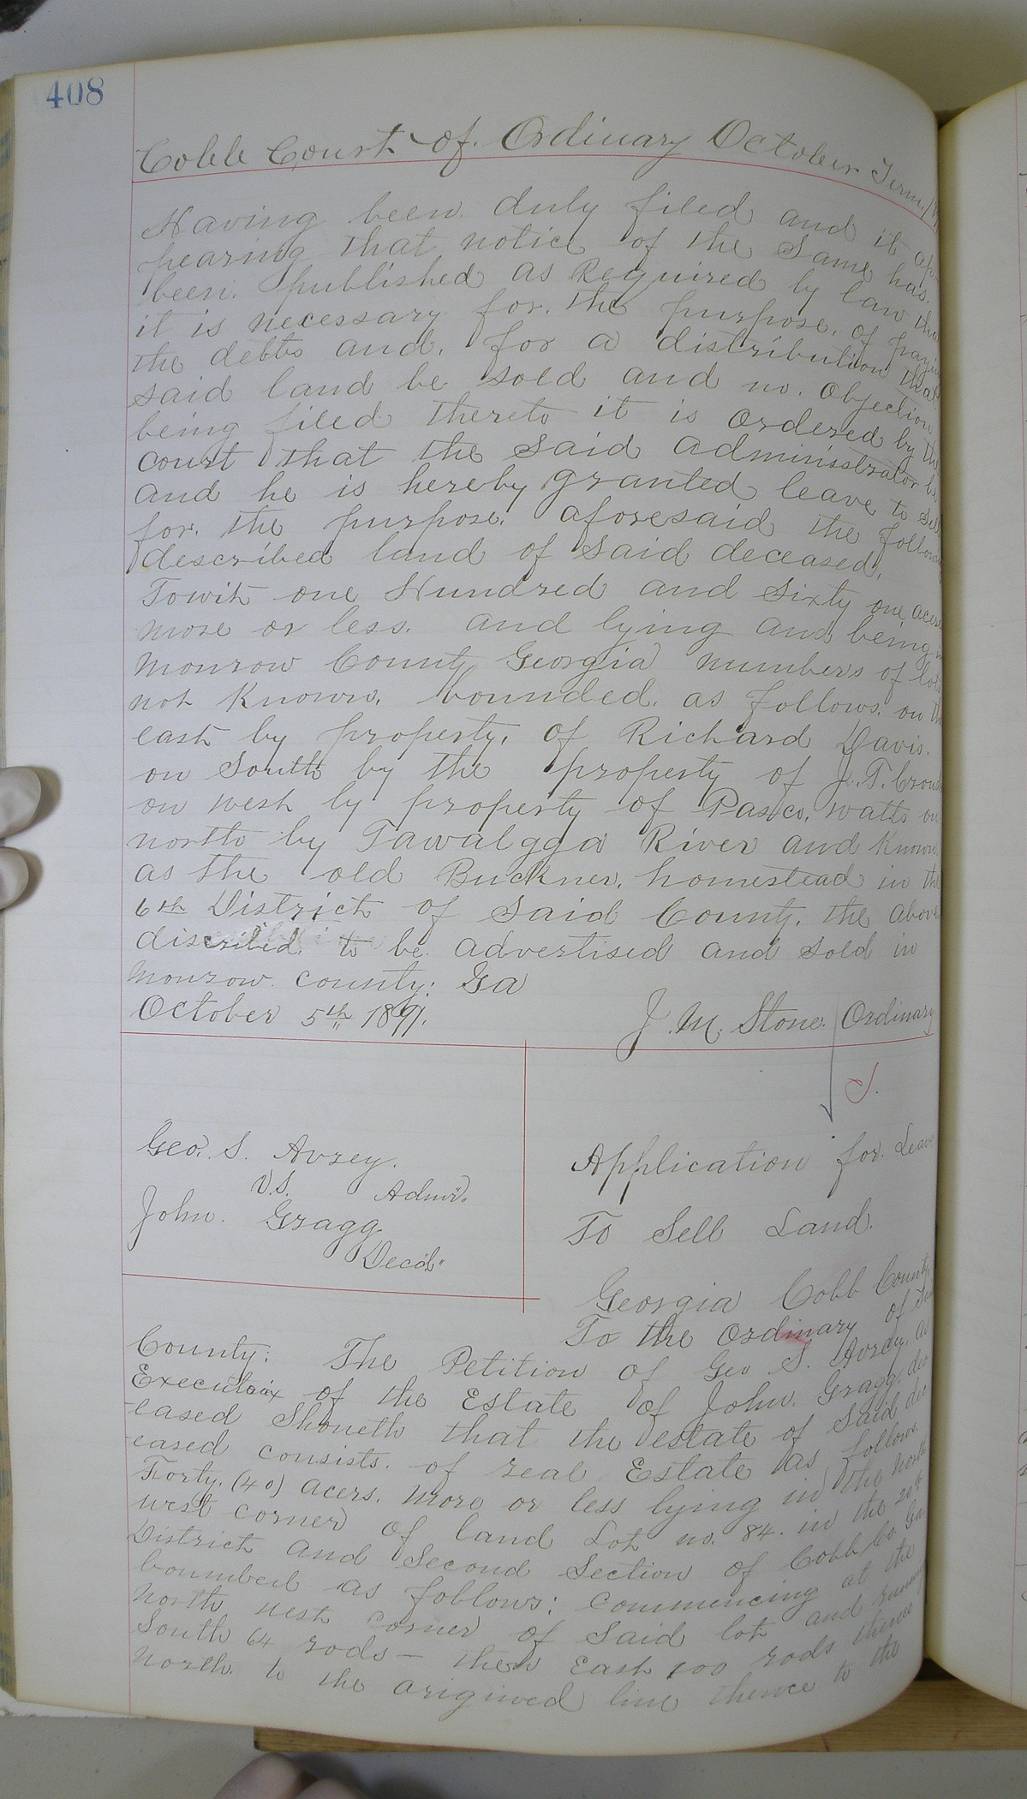 408
Cobb Court of Ordinary October Term, 1
Having been duly filed and it ap
pearing that notice of the Same has
been published as Required by law tha
it is necessary for the purpose of payin
the debts and for a distribution that
said land be sold and no objection
being filed thereto it is ordered by the
court that the Said administrator be
and he is hereby granted leave to sell
for the purpose aforesaid the follow
described land of Said deceased,
Towit one Hundred and Sixty one acers
more or less. and lying and being in
Monrow County Georgia numbers of lots
not known. bounded as follows. on the
east by property of Richard Davis.
on South by the property of J. T.
on west by property of Pasco. watts on
north by Tawalgga River and Known
as the old Buckner homestead in the
6th District of Said County. the above
discribed to be advertised and sold in
Monrow county: Ga
October 5th 1891. J. M. Stone. Ordinary
Geo. S. Avrey.
V.S. Admr.
John. Gragg.
Decd.
Application for Leav
To Sell Land.
Georgia Cobb County
To the Ordinary of Said
County: The Petition of Geo S. Avrey. as
of the Estate of John. Gragg de
ceased Shoneth that the estate of Said de
ceased consists. of real Estate as follows
Forty. (40) acers. more or less lying in the North
west corner of land Lot no. 84. in the 20th
District and Second Section of Cobb Co. Ga
bounded as follows: commencing at the
North west corner of Said lot and runing
South 64 rods — then East 100 rods thence
North to the line thence to the